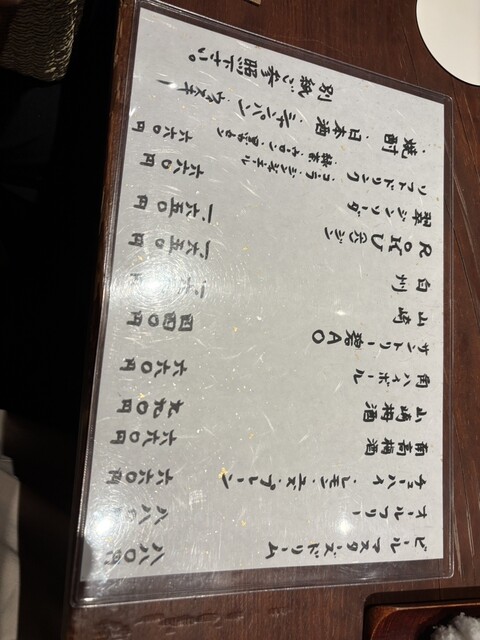 ビール マスターズドリーム 八八〇円
オールフリー 八八〇
チューハイ ・レモン・ユズ・プレーン 六六〇円
南高梅酒 六六〇円
山崎梅酒 九九〇円
角ハイボール 六六〇円
サントリー碧AO 四四〇円
山崎 一六
白州 一六五〇円
ROKU〈六〉ジン 一六五〇円
翠ジンソーダ 六六〇円
ソフトドリンク ・コーラ・ジンジャエール 六六〇円
・緑茶・ウーロン・黒ウーロン
・焼酎 ・日本酒 ・シャンパン ・ウィスキー
別紙ご参照下さい。